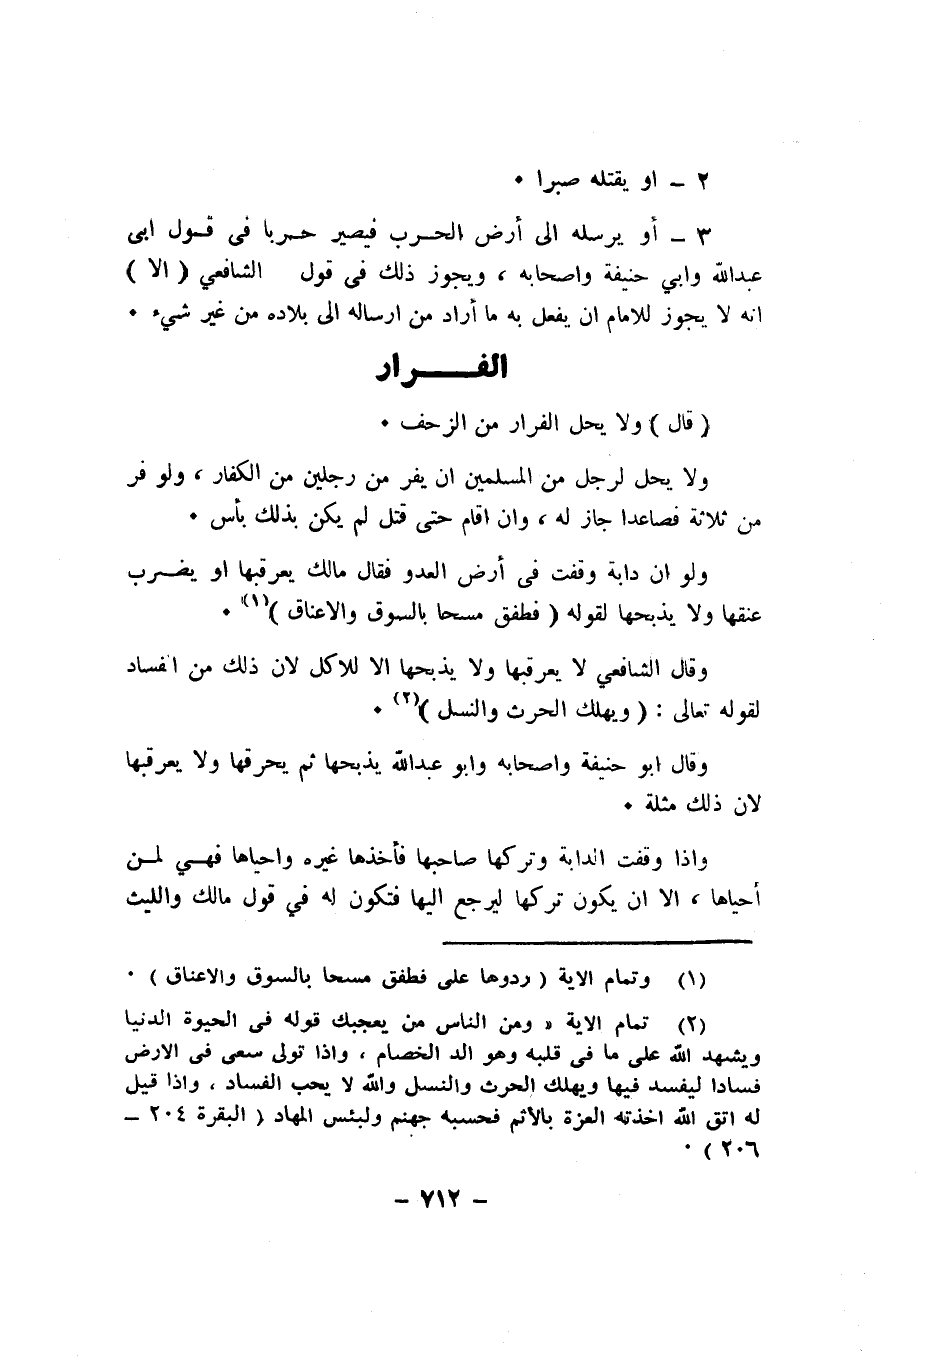 ٢ ـ او يقتله صبرا ٠
٣ ـ أو يرسله الى أرض الحرب فيصير حربا فى قول ابى
عبدالله وابي حنيفة واصحابه ، ويجوز ذلك فى قول الشافعي ( الا )
انه لا يجوز للامام ان يفعل به ما أراد من ارساله الى بلاده من غير شيء ٠
الفـــرار
( قال ) ولا يحل الفرار من الزحف ٠
ولا يحل لرجل من المسلمين ان يفر من رجلين من الكفار ، ولو فر
من ثلاثة فصاعدا جاز له ، وان اقام حتى قتل لم يكن بذلك بأس ٠
ولو ان دابة وقفت فى أرض العدو فقال مالك يعرقبها او يضرب
عنقها ولا يذبحها لقوله ( فطفق مسحا بالسوق والاعناق )(١) ٠
وقال الشافعي لا يعرقبها ولا يذبحها الا للاكل لان ذلك من الفساد
لقوله تعالى : ( ويهلك الحرث والنسل )(٢) ٠
وقال ابو حنيفة واصحابه وابو عبدالله يذبحها ثم يحرقها ولا يعرقبها
لان ذلك مثلة ٠
واذا وقفت الدابة وتركها صاحبها فأخذها غيره واحياها فهي لمن
أحياها ، الا ان يكون تركها ليرجع اليها فتكون له في قول مالك والليث
(١) وتمام الاية ( ردوها على فطفق مسحا بالسوق والاعناق ) ٠
(٢) تمام الاية « ومن الناس من يعجبك قوله فى الحيوة الدنيا
ويشهد الله على ما فى قلبه وهو الد الخصام ، واذا تولى سعى فى الارض
فسادا ليفسد فيها ويهلك الحرث والنسل والله لا يحب الفساد ، واذا قيل
له اتق الله اخذته العزة بالأثم فحسبه جهنم ولبئس المهاد ( البقرة ٢٠٤ ـ
٢٠٦ ) ٠
ـ ٧١٢ ـ